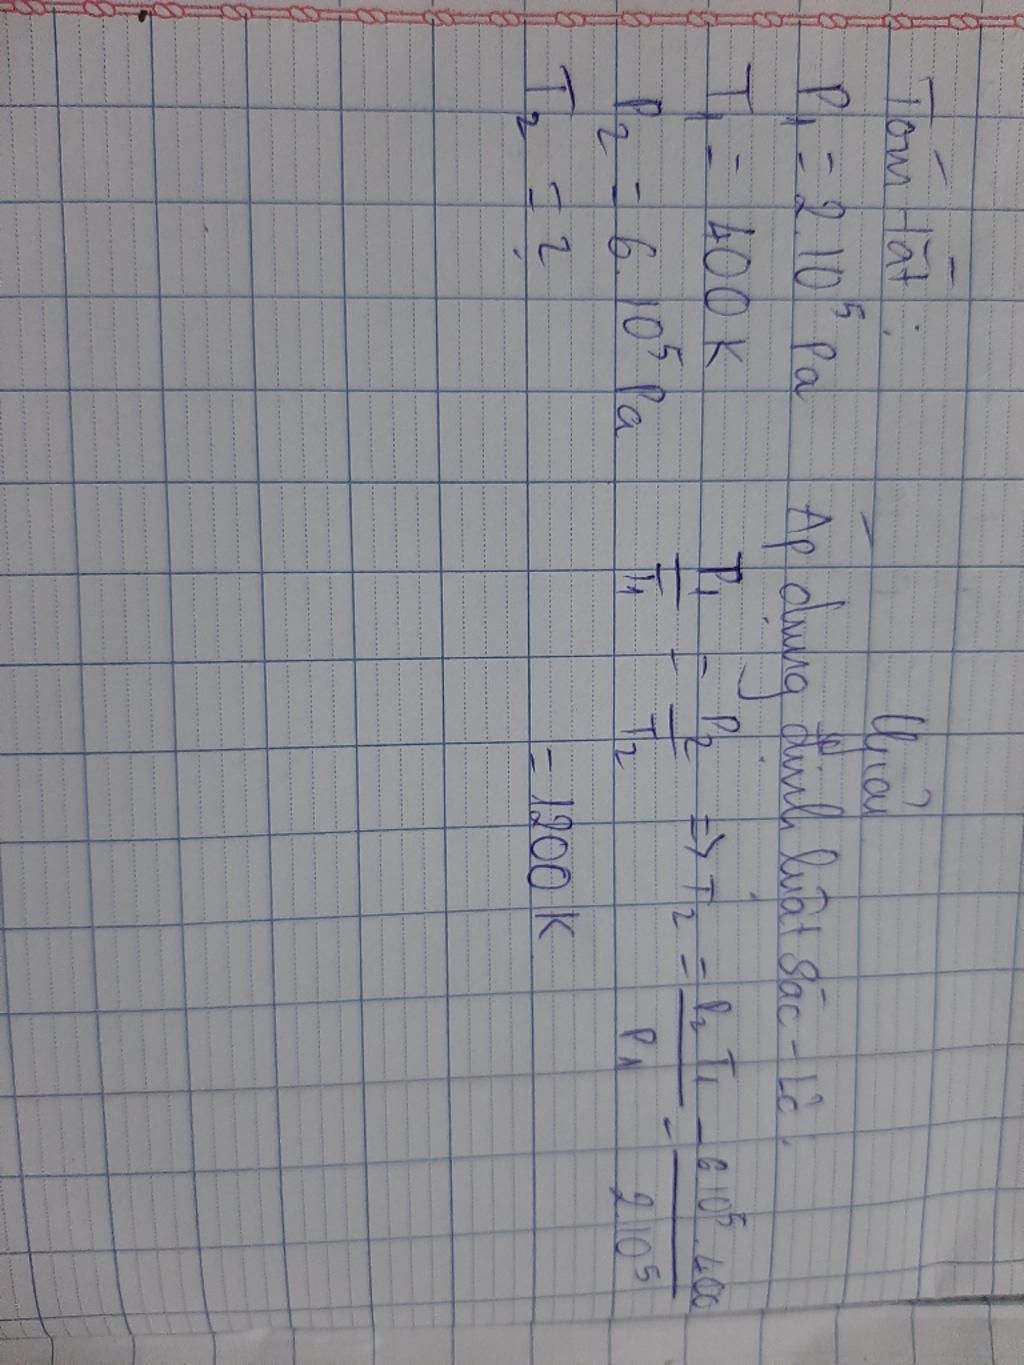 Tóm tắt :
P₁ = 2.10⁵ Pa
T₁ = 400 K
P₂ = 6.10⁵ Pa
T₂ = ?
Giải
Áp dụng định luật Sác - Lơ,
P₁/T₁ = P₂/T₂ => T₂ = P₂T₁/P₁ = 6.10⁵.400/2.10⁵
= 1200 K